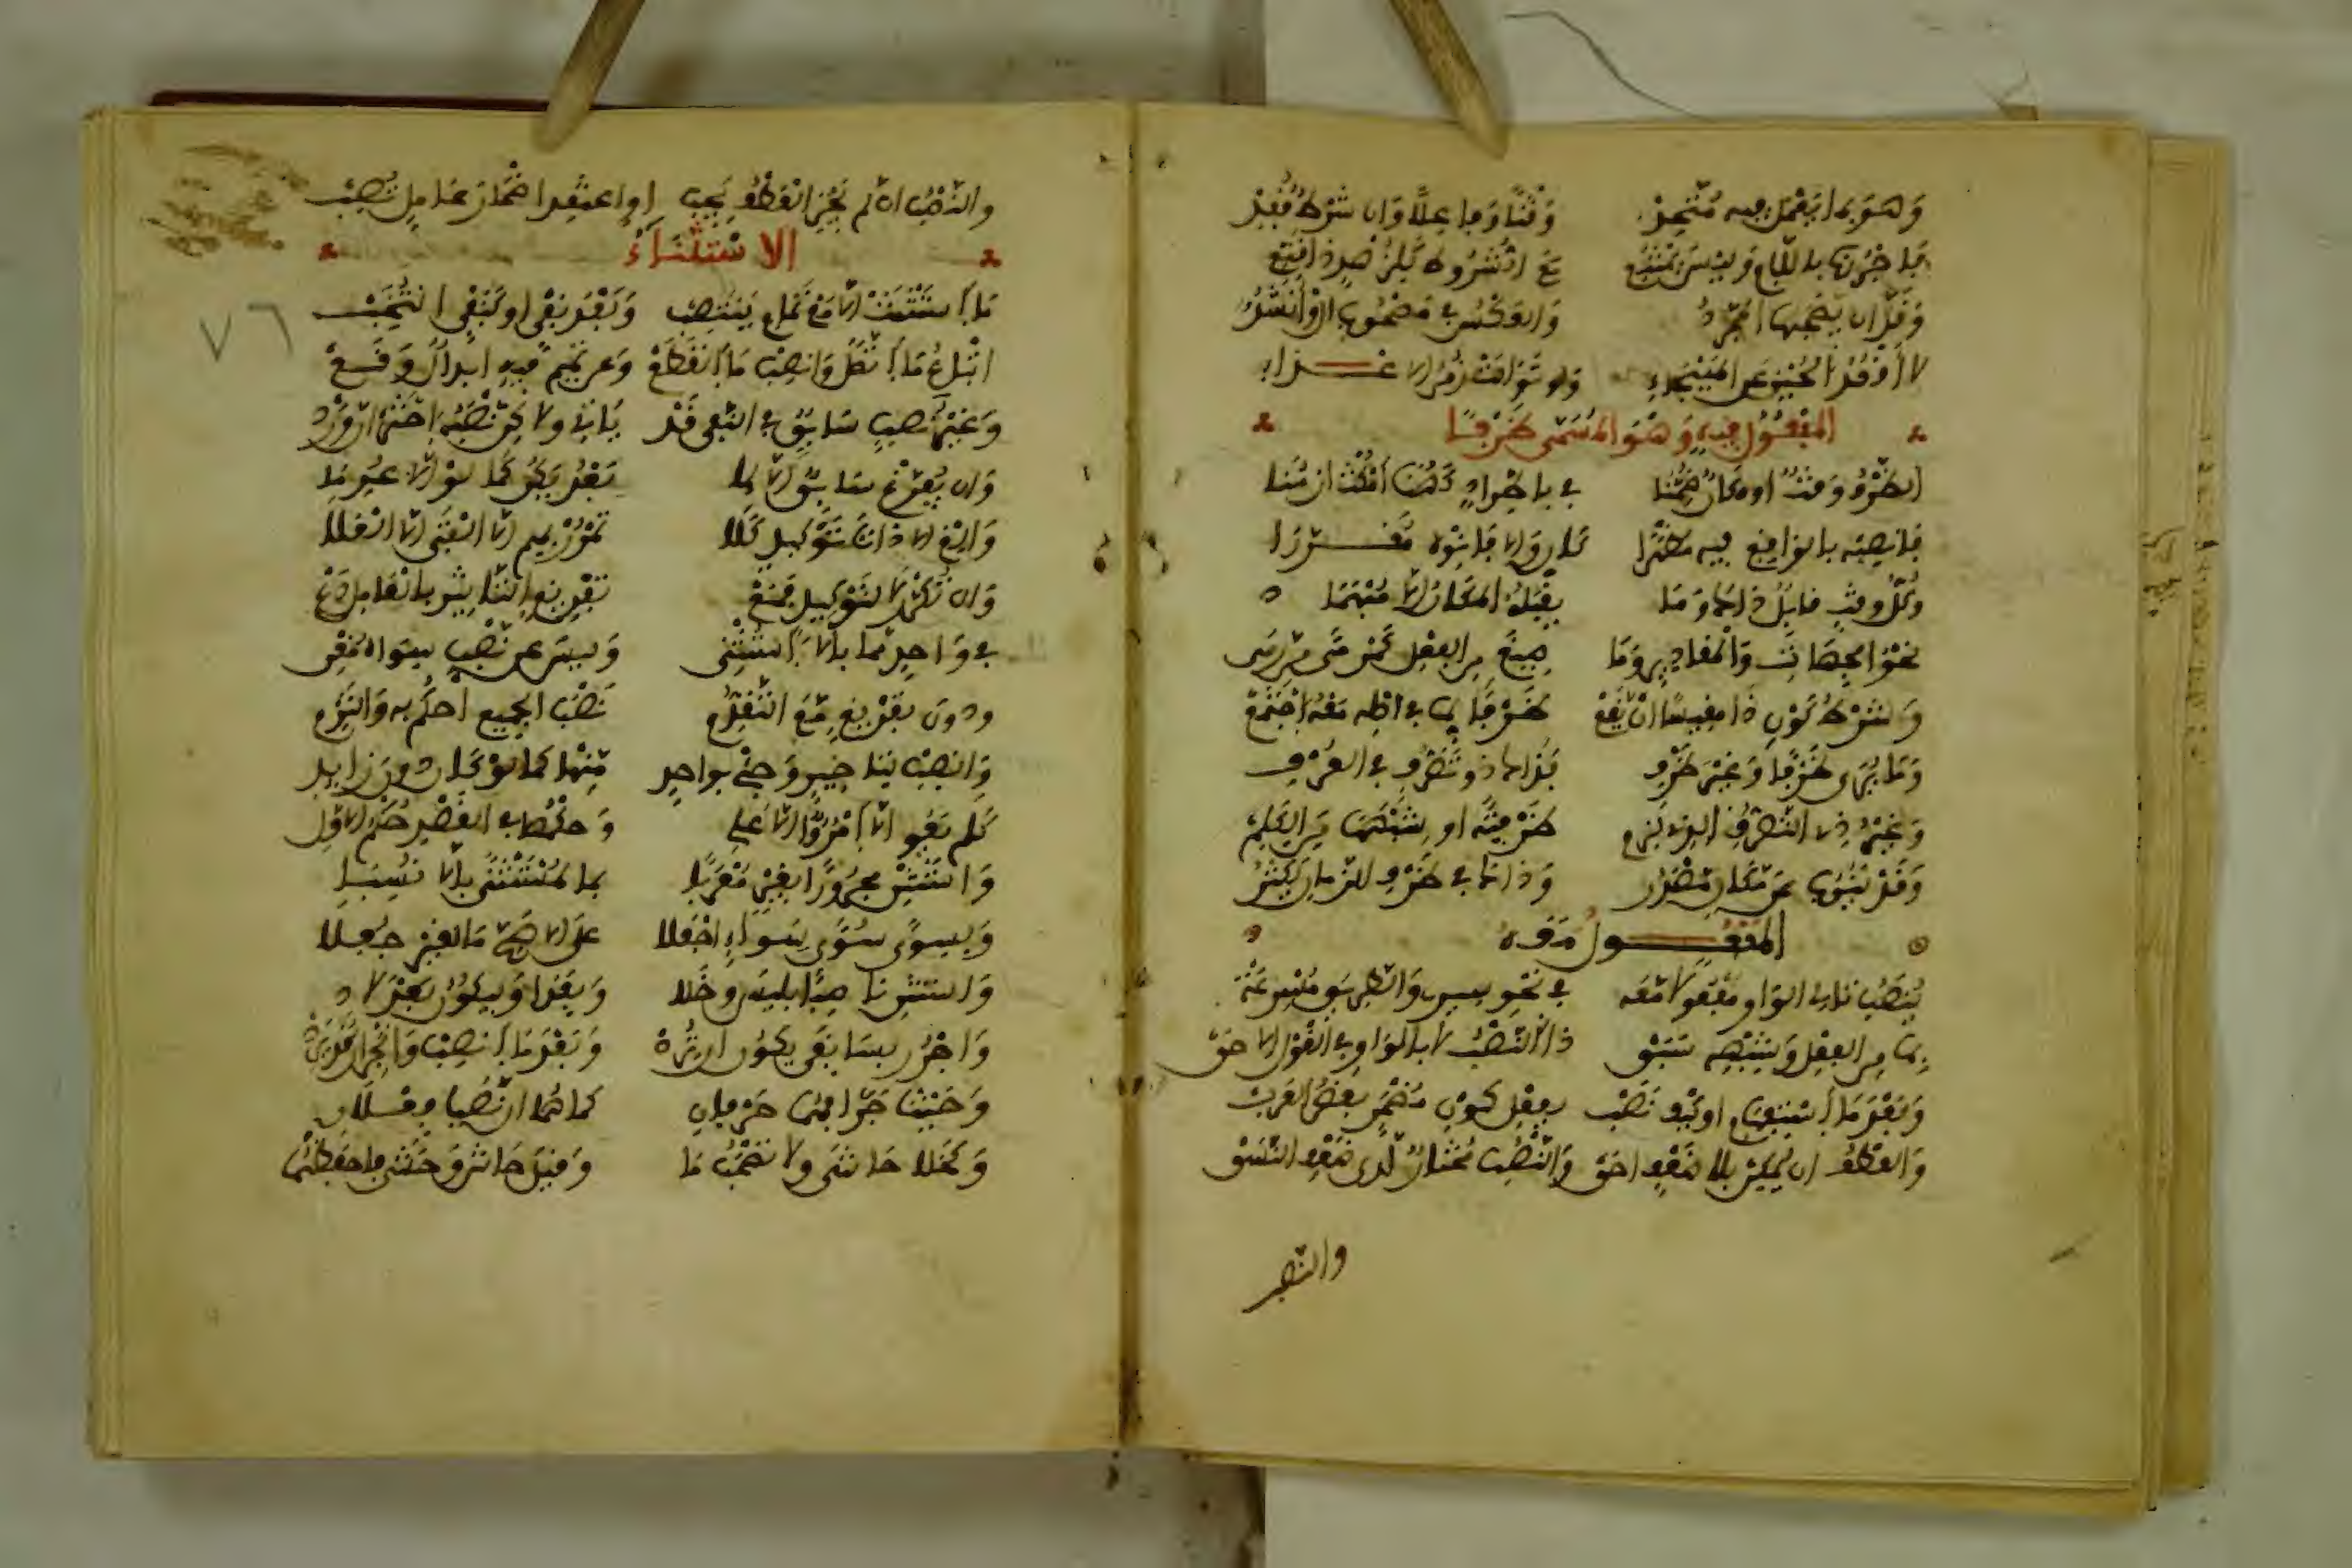 وَهْوَ بما يَعْمَلُ فيه مُتَّحِدْ وَقْتًا وَفاعِلًا وَان شَرْطٌ فُقِدْ
فَاجْرُرْهُ باللَّامِ وَلَيْسَ يَمْتَنِعْ مَعَ الشُّرُوطِ كَلِزُهْدٍ ذا قَنِعْ
وَقَلَّ ان يَصْحَبَهَا المُجَرَّدُ وَالعَكْسُ فِي مَصْحُوبِ الْ وَأَنْشَدُوا
لا أَقْعُدُ الجُبْنَ عَنِ الهَيْجَاءِ وَلَو تَوَالَتْ زُمَرُ الاعْــدَاءِ
المَفْعُولُ فِيهِ وَهْوَ المُسَمَّى ظَرْفًا
الظَّرْفُ وَقْتٌ او مكانٌ ضُمِّنَا فِي باطِّرادٍ كَهُنَا امْكُثْ ازْمُنَا
فانصِبْهُ بالوَاقِعِ فيه مُظْهَرَا كانَ وَالا فَانْوِهِ مُقَــدَّرَا
وكُلُّ وقتٍ قابِلٌ ذاكَ وَمَا يَقْبَلُهُ المكانُ الَّا مُبْهَمَا
نحْوُ الجِهَاتِ وَالْمَقادِيرِ وَمَا صِيغَ مِنَ الفِعْلِ كَمَرْمًى مِن رَمَى
وَشَرْطُ كَوْنِ ذَا مَقِيسًا انْ يَقَعْ ظَرْفًا لِمَا فِي اصْلِهِ مَعْهُ اجْتَمَعْ
وَمَا يُرَى ظَرْفًا وَغَيْرَ ظَرْفِ فَذَاكَ ذو تَصَرُّفٍ فِي العُرْفِ
وَغَيْرُ ذِي التَّصَرُّفِ الذِي لَزِمْ ظَرْفِيَّةً او شِبْهَهَا مِنَ الكَلِمْ
وَقَدْ يَنُوبُ عَنْ مَكَانٍ مَصْدَرُ وَذاكَ فِي ظَرْفِ الزَّمانِ يَكْثُرُ
المَفْعُــولُ مَعَهُ
يُنْصَبُ تالِي الوَاوِ مَفْعُولًا مَعَهْ فِي نَحْوِ سِيرِي وَالطَّرِيقَ مُسْرِعَهْ
بِمَا مِنَ الفِعْلِ وَشِبْهِهِ سَبَقْ ذا النَّصْبُ لا بالوَاوِ فِي القَوْلِ الاحَقّ
وَبَعْدَ مَا اسْتِفْهَامٍ اوْ كَيْفَ نَصَبْ بِفِعْلِ كَوْنٍ مُضْمَرٍ بَعْضُ العَرَبْ
وَالعَطْفُ ان يُمْكِنْ بلا ضَعْفٍ احَقّ وَالنَّصْبُ مُخْتَارٌ لَدَى ضَعْفِ النَّسَقْ
والنصب
والنَّصْبُ ان لم يَجُزِ العَطْفُ يَجِبْ اوِ اعْتَقِدْ اضْمَارَ عَامِلٍ تُصِبْ
الاسْتِثْنَاءُ
٧٦
مَا اسْتَثْنَتِ الَّا مَعْ تَمَامٍ يَنْتَصِبْ وَبَعْدَ نَفْيٍ او كَنَفْيٍ انْتُخِبْ
اتْبَاعُ مَا اتَّصَلَ وَانصِبْ مَا انقَطَعْ وَعن تَمِيمٍ فِيهِ ابدالٌ وَقَــعْ
وَغَيْرُ نَصْبِ سَابِقٍ فِي النَّفيِ قَدْ يَاتِي ولاكِنْ نَصْبَهُ اخْتَرْ ان وَرَدْ
وَان يُفَرَّغْ سَابِقٌ الَّا لِمَا بَعْدُ يَكُنْ كَمَا لَوِ الَّا عُدِمَا
وَالْغِ الَّا ذاتَ تَوْكِيدٍ كَلَا تَمْرُرْ بِهِم الَّا الفَتَى الَّا العَلَا
وَان تُكَرَّرْ لَا لِتَوْكِيدٍ فَمَعْ تَفْرِيغٍ التَّاثِيرَ بالعَامِلِ دَعْ
فِي وَاحِدٍ مما بالَّا اسْتُثْنِي وَلَيْسَ عن نَصْبِ سِوَاهُ مُغْنِي
ودونَ تَفْرِيغٍ مَعَ التَّقَدُّمِ نَصْبَ الجَمِيعِ احكُمْ به وَالتَزِمِ
وَانصِبْ لِتَاخِيرٍ وَجِئْ بواحِدِ مِنْهَا كَمَا لَوْ كانَ دونَ زايِدِ
كَلم يَفُوا الَّا امْرُؤٌ الَّا عَلِي وَحُكْمُهَا فِي القَصْدِ حُكْمُ الاوَّلِ
وَاسْتَثْنِ مَجْرُورًا بِغَيْرٍ مُعْرَبَا بما لِمُسْتَثْنًى بالَّا نُسِبَا
وَلِسِوًى سُوًى سَوَاءٍ اجْعَلَا عَلَى الاصَحِّ مَا لِغَيْرٍ جُعِلَا
وَاسْتَثْنِ نَاصِبًا بِلَيْسَ وَخَلَا وَبِعَدَا وَبِيَكُونُ بَعْدَ لا
وَاجْرُرْ بِسَابِقَيْ يَكُونُ ان تُرِدْ وَبَعْدَ مَا انصِبْ وَانْجِرَارٌ قَدْ يَرِدْ
وَحَيْثُ جَرَّا فَهُمَا حَرْفَانِ كَمَا هُمَا ان نَصَبَا فِعْلَانِ
وَكَخَلَا حَاشَى ولا تَصْحَبُ مَا وَقِيلَ حَاشَ وَحَشَى فاحْفَظْهُمَا